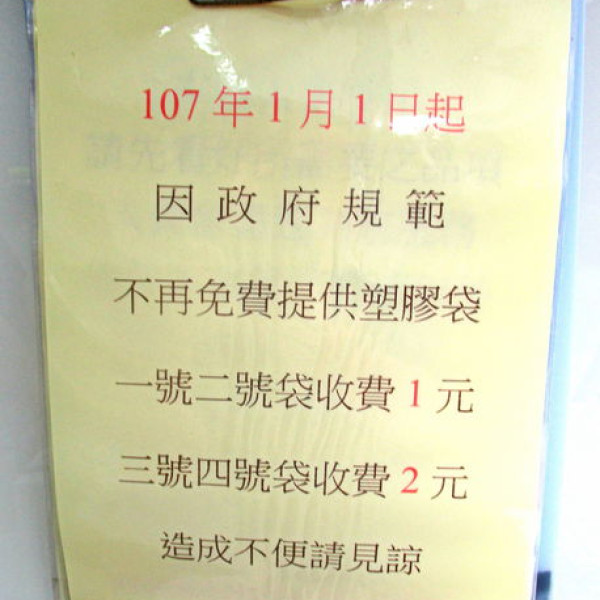 107 年 1 月 1 日起
因政府規範
不再免費提供塑膠袋
一號二號袋收費 1 元
三號四號袋收費 2 元
造成不便請見諒